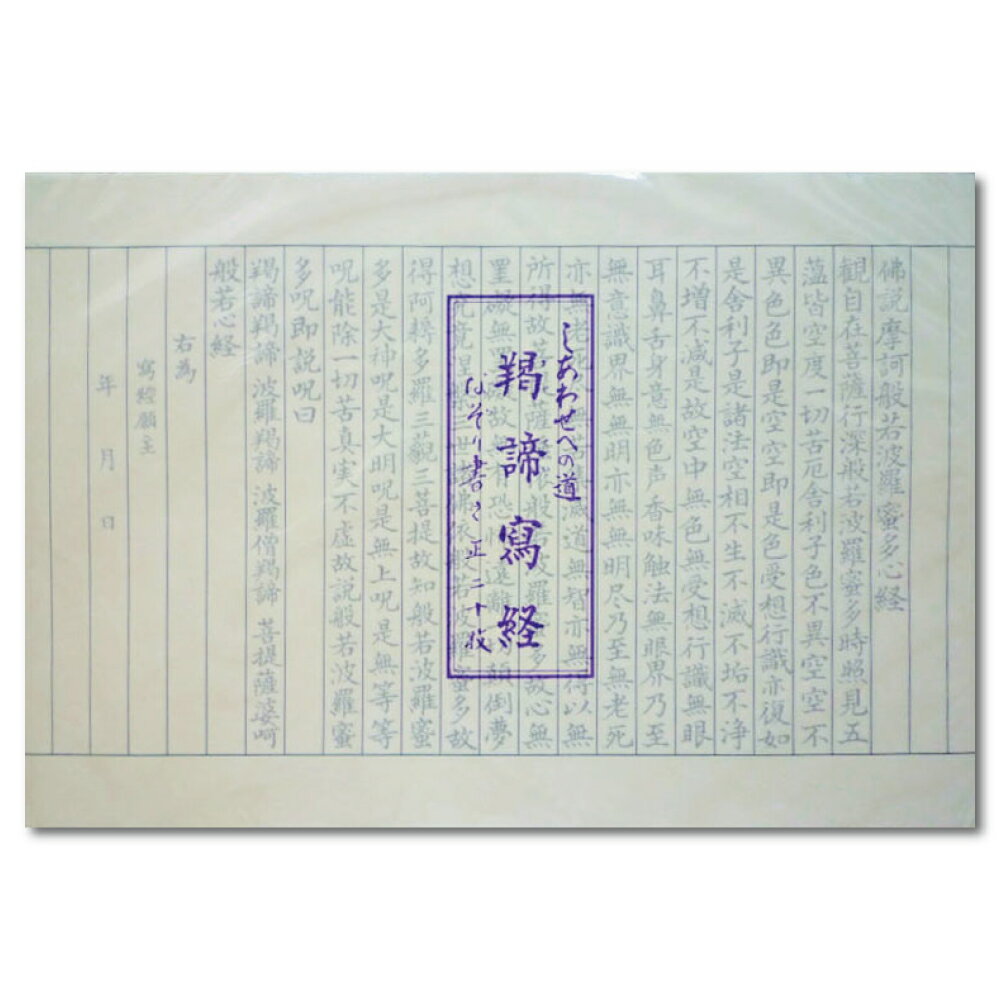 佛説摩訶般若波羅蜜多心経
観自在菩薩行深般若波羅蜜多時照見五
薀皆空度一切苦厄舎利子色不異空空不
異色色即是空空即是色受想行識亦復如
是舎利子是諸法空相不生不滅不垢不浄
不増不減是故空中無色無受想行識無眼
耳鼻舌身意無色声香味触法無眼界乃至
無意識界無無明亦無無明尽乃至無老死
亦無老死滅道無智亦無得以無
所得故菩薩般波羅多故心無
罣礙無故有恐遠離顛倒夢
想究竟涅世佛依般若波羅蜜多故
得阿耨多羅三藐三菩提故知般若波羅蜜
多是大神呪是大明呪是無上呪是無等等
呪能除一切苦真実不虚故説般若波羅蜜
多呪即説呪曰
羯諦羯諦 波羅羯諦 波羅僧羯諦 菩提薩婆呵
般若心経
右為
寫經願主
年 月 日
しあわせへの道
羯諦寫経
なぞり書き 正二十枚